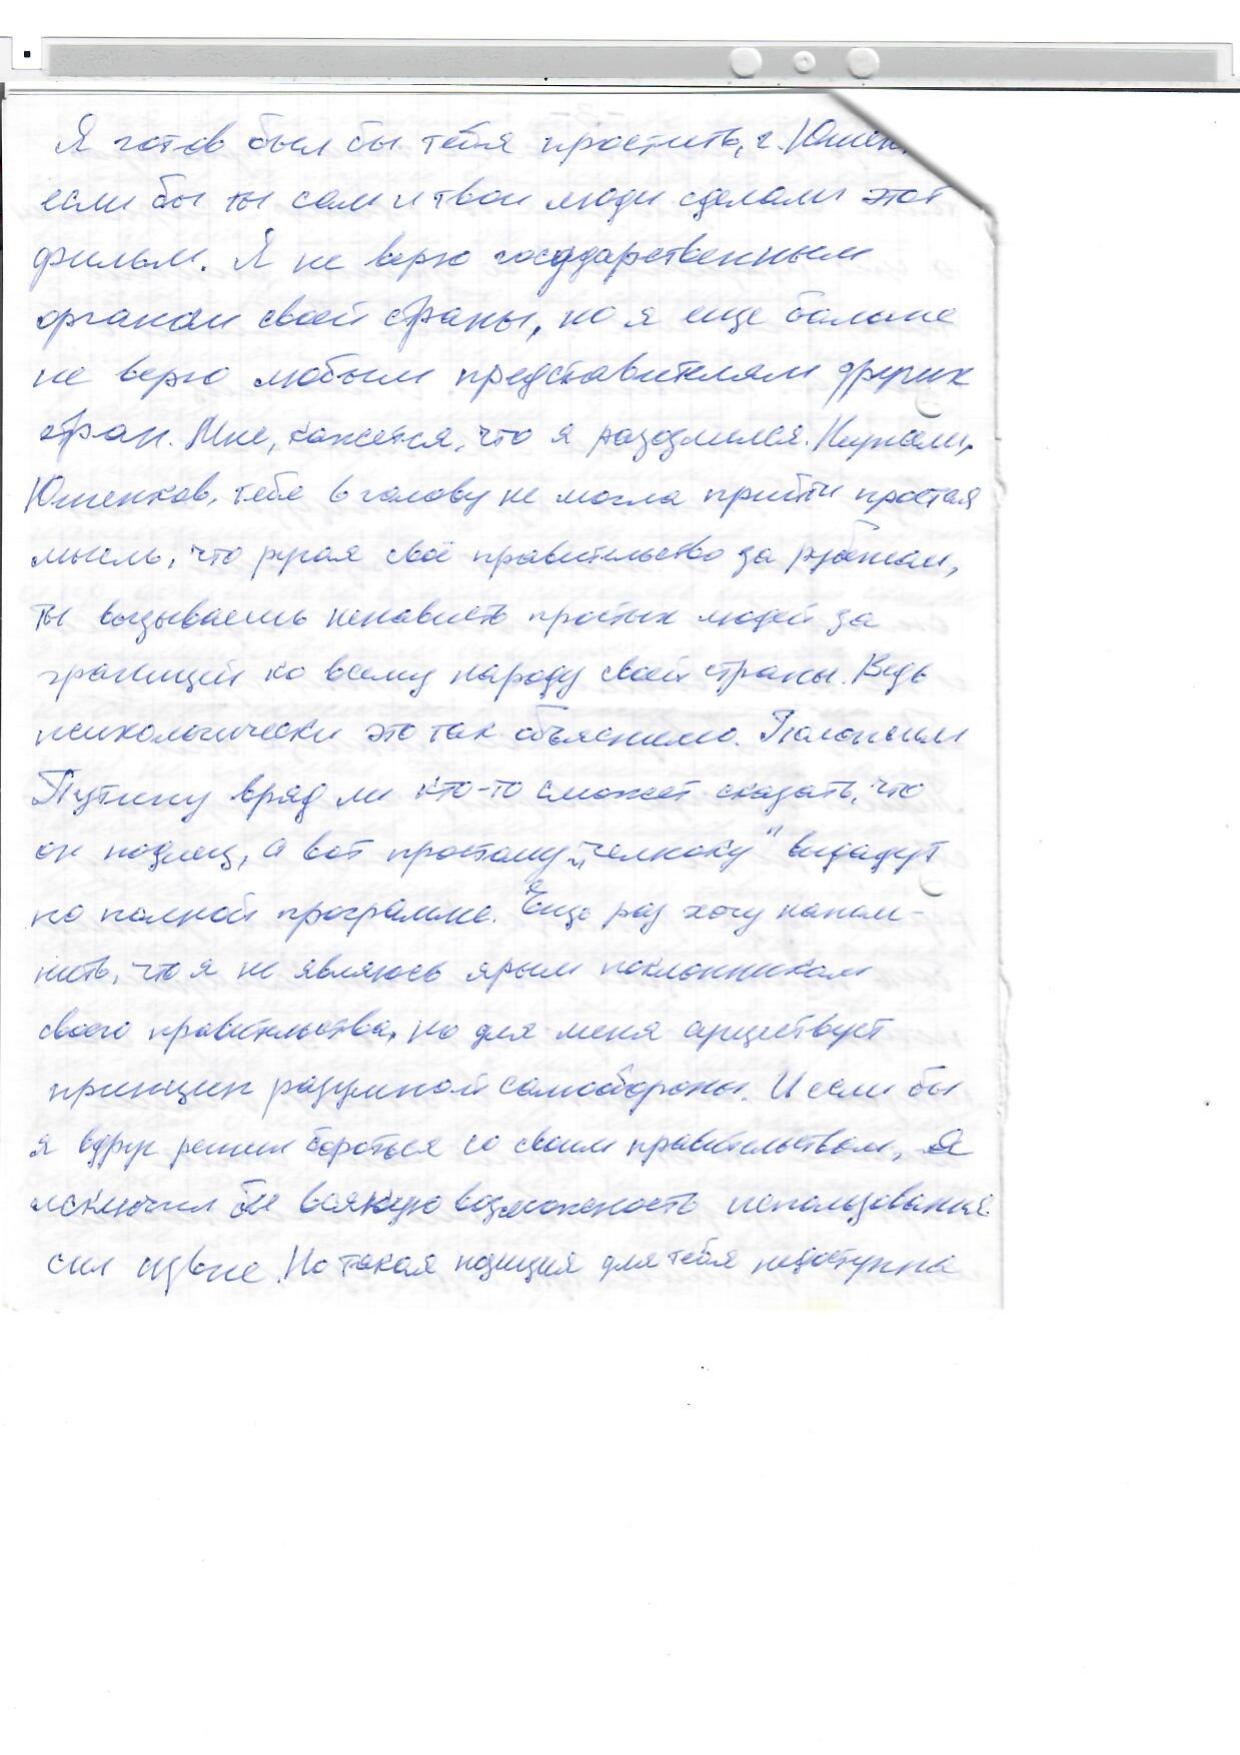 Я готов был бы тебя простить, г. Юшен
если бы ты сам и твои люди сделали этот
фильм. Я не верю государственным
органам своей страны, но я еще больше
не верю любым представителям других
стран. Мне, кажется, что я разозлился. Неужели,
Юшенков, тебе в голову не могла прийти простая
мысль, что ругая своё правительство за рубежом,
ты вызываешь ненависть простых людей за
границей ко всему народу своей страны. Ведь
психологически это так объяснимо. Положим
Путину вряд ли кто-то сможет сказать, что
он подлец, а вот простому „челноку" выдадут
по полной программе. Еще раз хочу напом-
нить, что я не являюсь ярым поклонником
своего правительства, но для меня существует
принцип разумной самообороны. И если бы
я вдруг решил бороться со своим правительством, я
исключил бы всякую возможность использования
сил извне. Но такая позиция для тебя недоступна